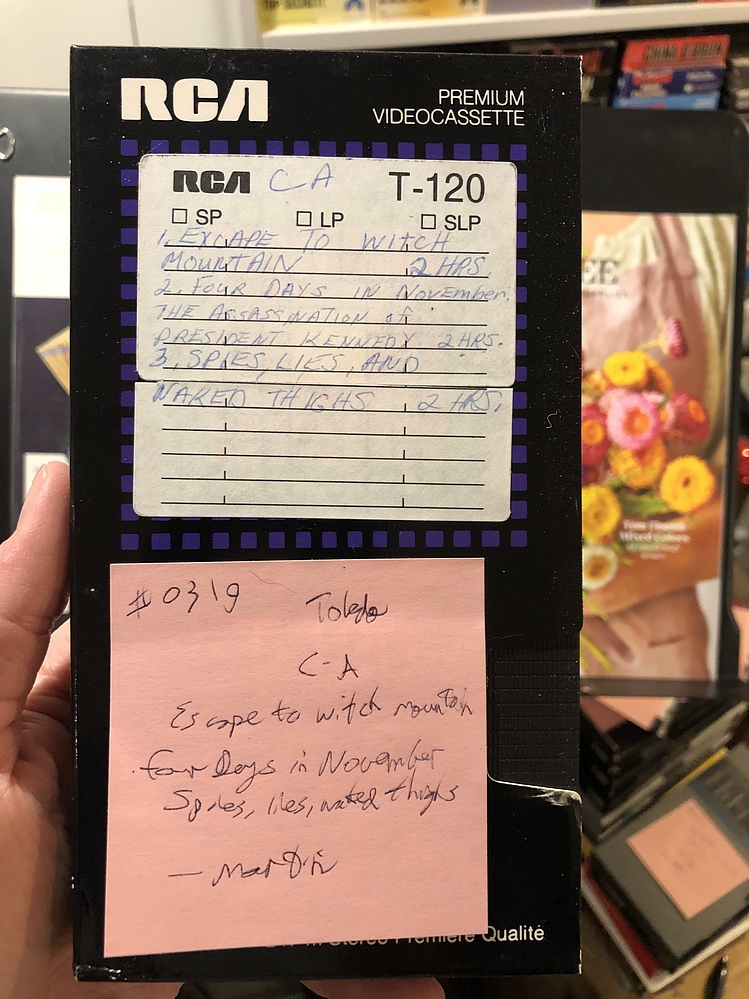 RCA
PREMIUM
VIDEOCASSETTE
RCA CA T-120
SP LP SLP
1. EXCAPE TO WITCH
MOUNTAIN 2 HRS.
2. FOUR DAYS IN NOVEMBER,
THE ASSASSINATION of
PRESIDENT KENNEDY 2 HRS.
3. SPIES, LIES, AND
NAKED THIGHS 2 HRS.
#0319 Toledo
C-A
Escape to witch mountain
four Days in November
Spies, lies, naked thighs
— Martin
Stereo Première Qualité